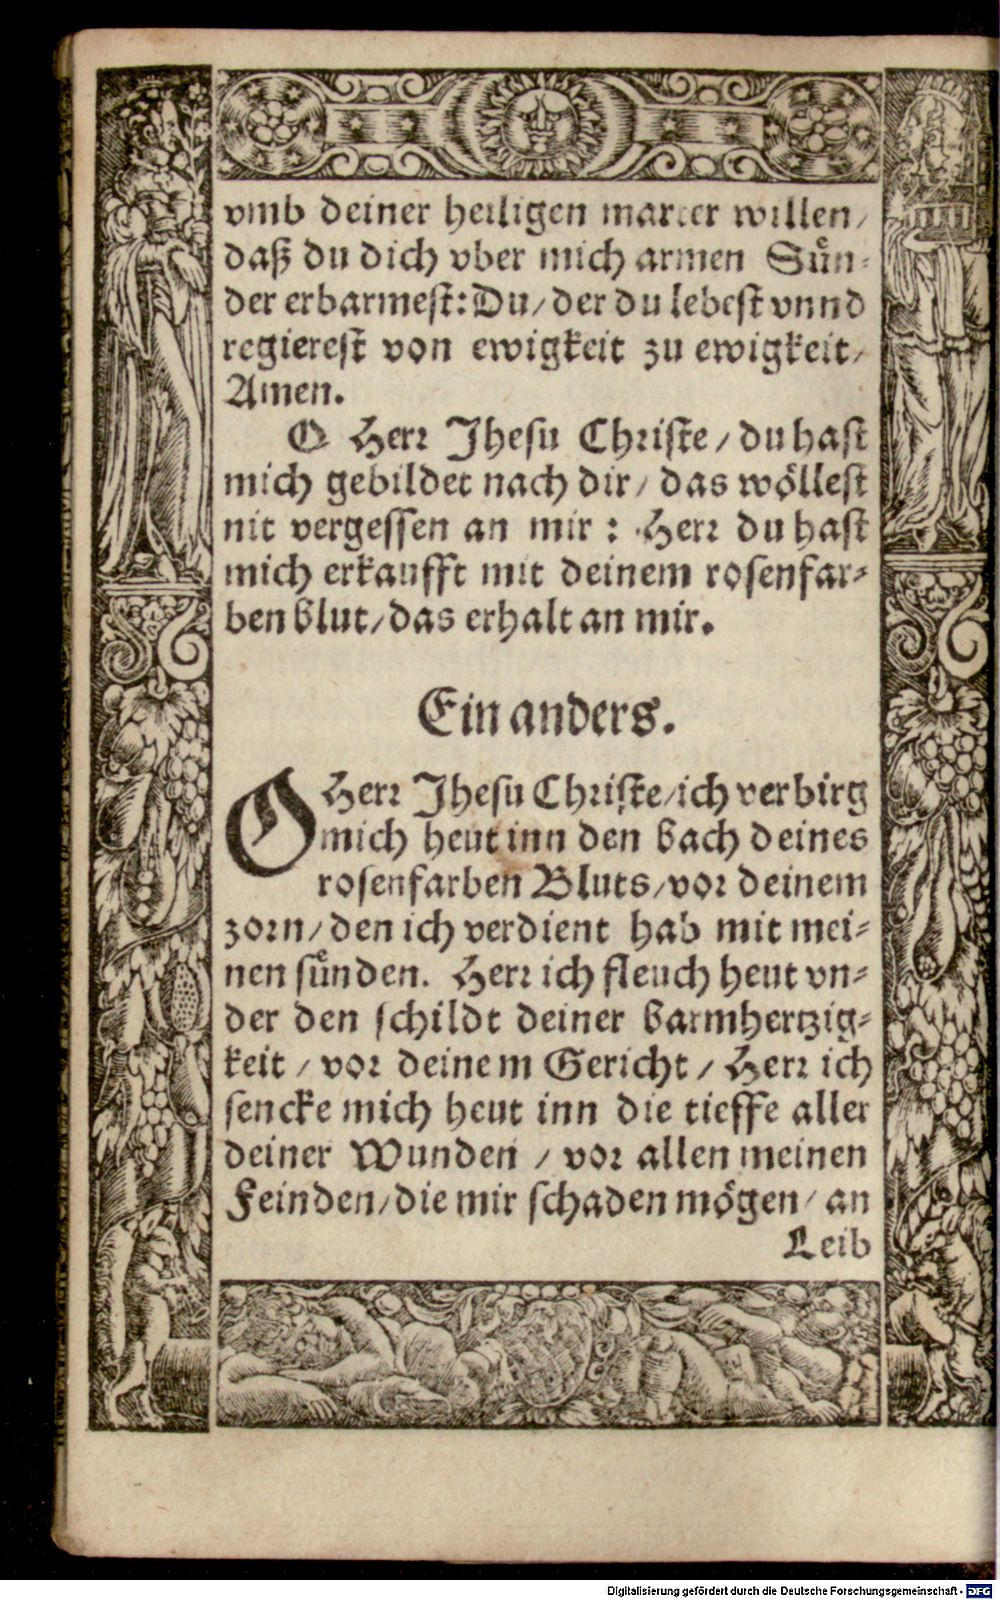 vmb deiner heiligen marter willen/
daß du dich vber mich armen Sün-
der erbarmest: Du/ der du lebest vnnd
regierest von ewigkeit zu ewigkeit/
Amen.
O Herr Jhesu Christe/ du hast
mich gebildet nach dir/ das wöllest
nit vergessen an mir: Herr du hast
mich erkaufft mit deinem rosenfar-
ben blut/ das erhalt an mir.
Ein anders.
O Herr Jhesu Christe/ ich verbirg
mich heut inn den bach deines
rosenfarben Bluts/ vor deinem
zorn/ den ich verdient hab mit mei-
nen sünden. Herr ich fleuch heut vn-
der den schildt deiner barmhertzig-
keit/ vor deinem Gericht/ Herr ich
sencke mich heut inn die tieffe aller
deiner Wunden/ vor allen meinen
Feinden/ die mir schaden mögen/ an
Leib
Digitalisierung gefördert durch die Deutsche Forschungsgemeinschaft - DFG